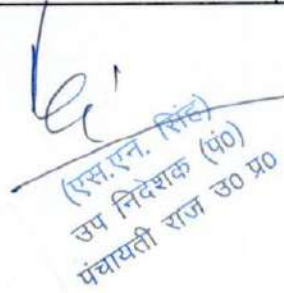 (एस.एन. सिंह)
उप निदेशक (पं०)
पंचायती राज उ० प्र०